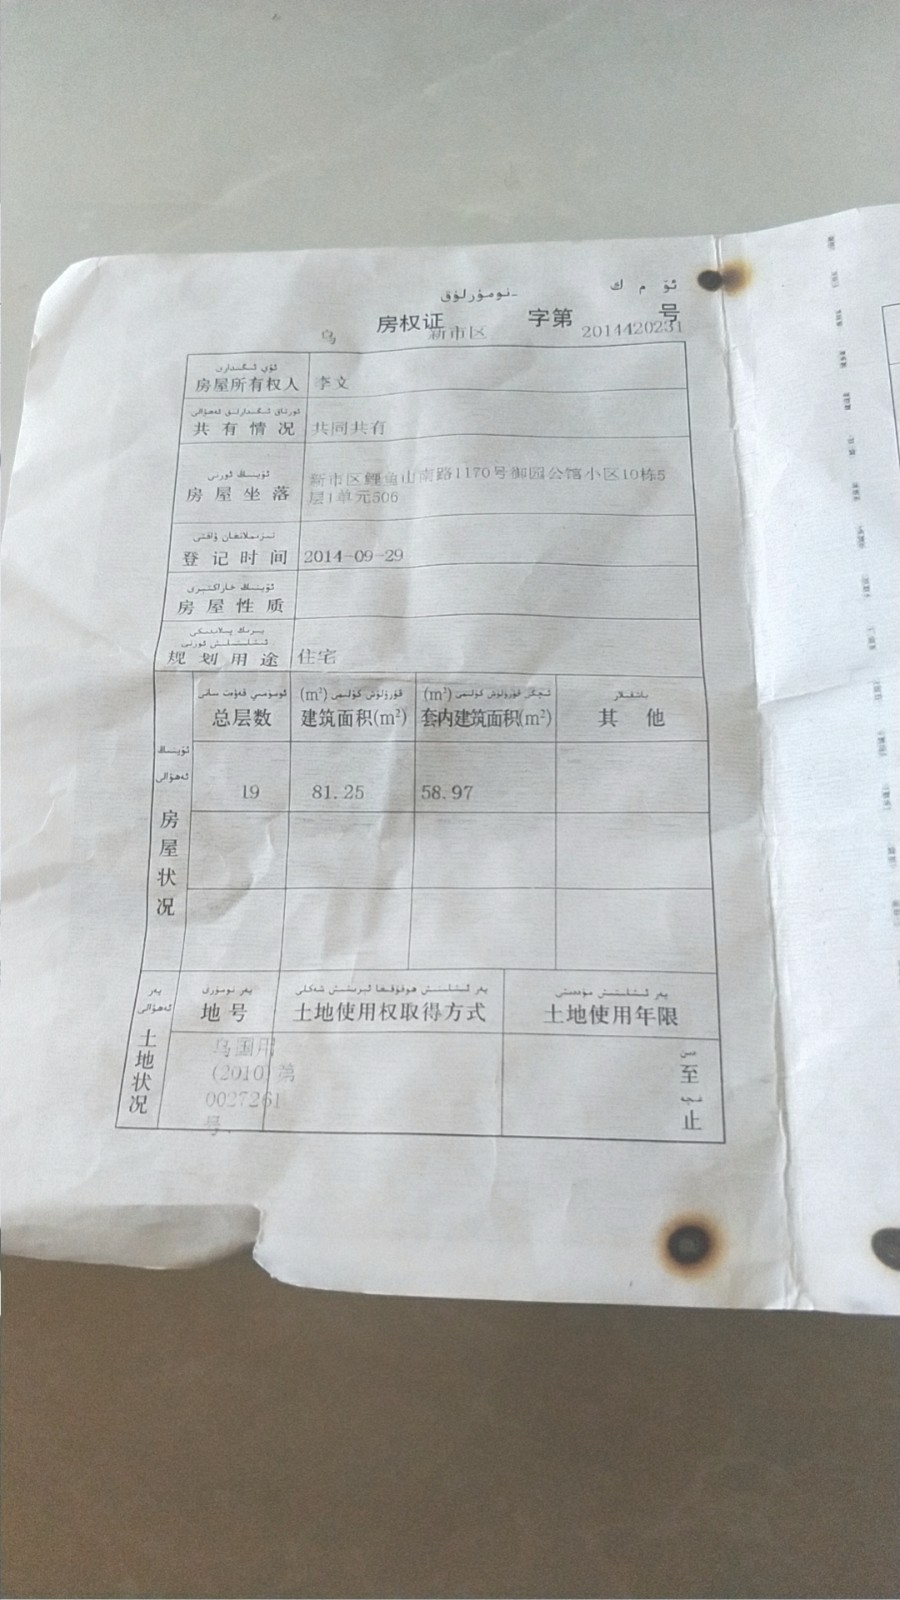 ئۆ م ك
ـنومۇرلۇق
乌 房权证 新市区 字第 2014420231 号
ئۆي ئىگىدارى
房屋所有权人 李文
ئورتاق ئىگىدارلىق ئەھۋالى
共有情况 共同共有
ئۆينىڭ ئورنى
房屋坐落 新市区鲤鱼山南路1170号御园公馆小区10栋5
层1单元506
تىزىملانغان ۋاقتى
登记时间 2014-09-29
ئۆينىڭ خاراكتېرى
房屋性质
规划用途 住宅
ئومۇمىي قەۋەت سانى (m²) قۇرۇلۇش كۆلىمى (m²) ئىچكى قۇرۇلۇش كۆلىمى باشقىلار
总层数 建筑面积(m²) 套内建筑面积(m²) 其他
ئۆينىڭ
ئەھۋالى
房屋状况
19 81.25 58.97
يەر نومۇرى يەر ئىشلىتىش هوقۇقىغا ئېرىشىش شەكلى يەر ئىشلىتىش مۇددىتى
地号 土地使用权取得方式 土地使用年限
يەر
ئەھۋالى
土地状况
乌国用
(2010)第
0027261
号.
至
止